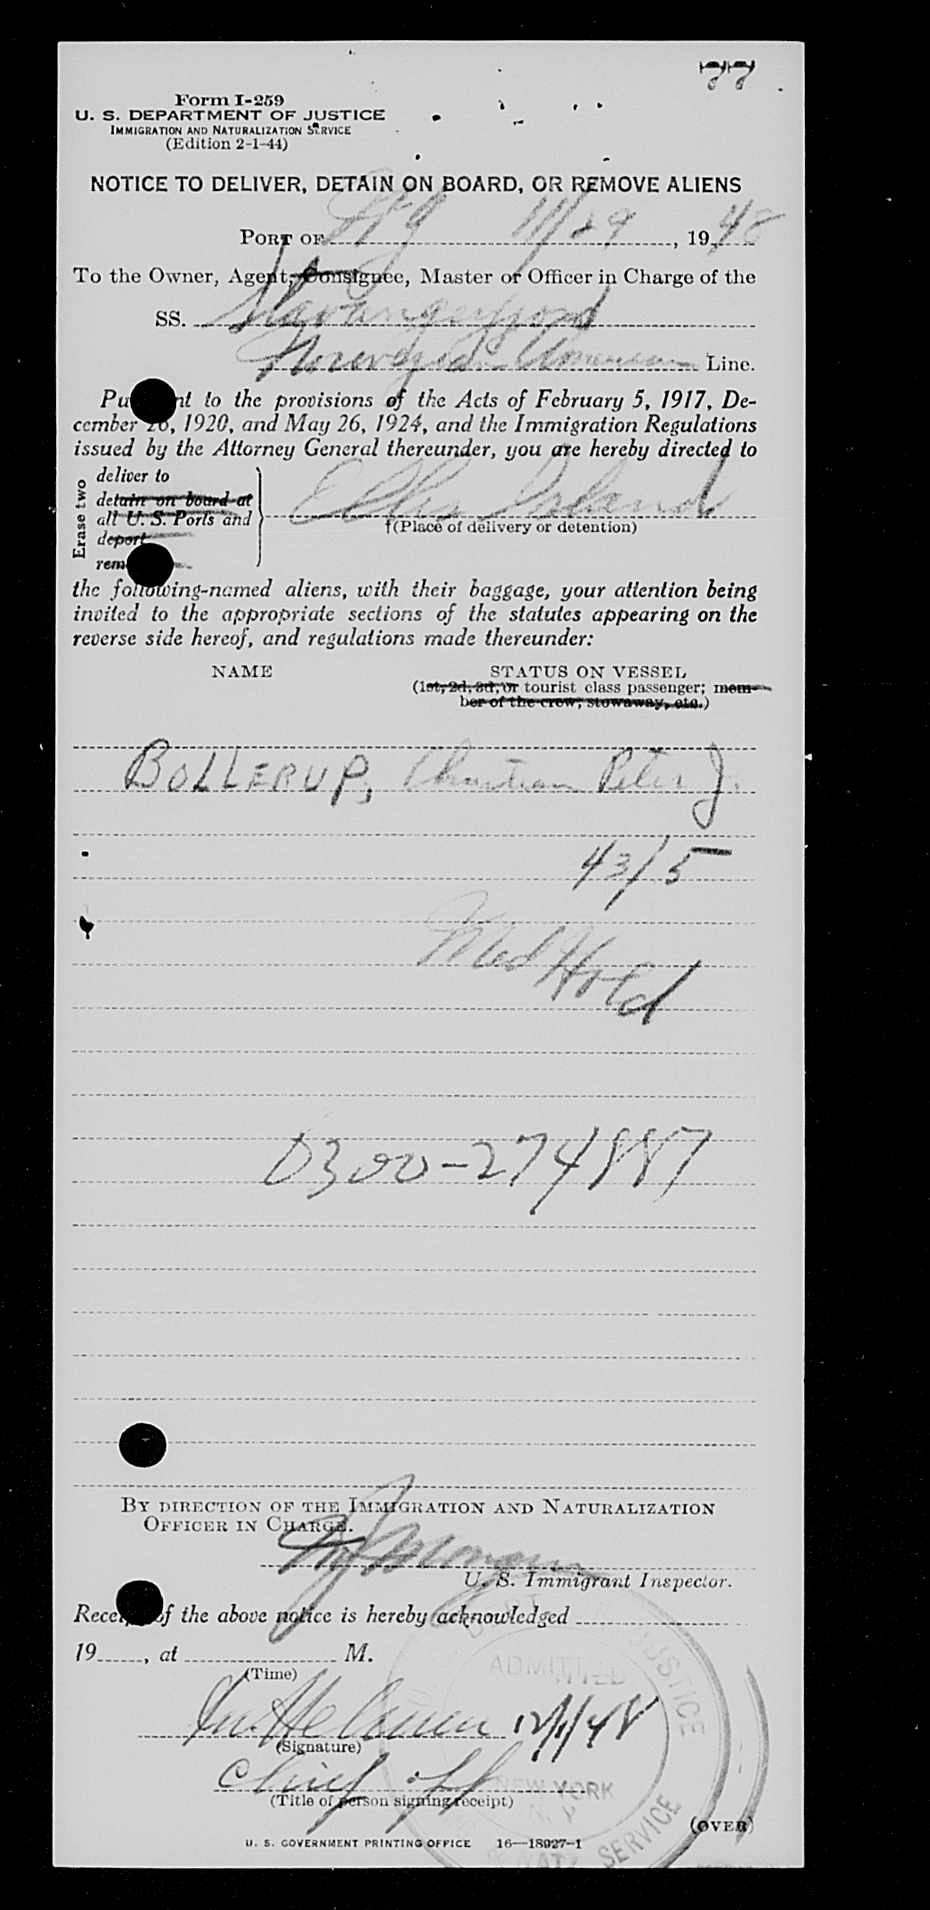 77
Form I-259
U. S. DEPARTMENT OF JUSTICE
IMMIGRATION AND NATURALIZATION SERVICE
(Edition 2-1-44)
NOTICE TO DELIVER, DETAIN ON BOARD, OR REMOVE ALIENS
PORT OF 11/29, 1948
To the Owner, Agent, Consignee, Master or Officer in Charge of the
SS. Stavangerfjord
Norwegian American Line.
Pu nt to the provisions of the Acts of February 5, 1917, De-
cember 26, 1920, and May 26, 1924, and the Immigration Regulations
issued by the Attorney General thereunder, you are hereby directed to
Erase two
deliver to
detain on board at
all U. S. Ports and
deport
rem
Ellis Island
†(Place of delivery or detention)
the following-named aliens, with their baggage, your attention being
invited to the appropriate sections of the statutes appearing on the
reverse side hereof, and regulations made thereunder:
NAME STATUS ON VESSEL
(1st, 2d, 3d, or tourist class passenger; mem-
ber of the crew, stowaway, etc.)
BOLLERUP, Christian Peter J.
43/5
Med Hold
0300-274887
BY DIRECTION OF THE IMMIGRATION AND NATURALIZATION
OFFICER IN CHARGE.
U. S. Immigrant Inspector.
Receipt of the above notice is hereby acknowledged
19, at M.
(Time)
12/1/48
(Signature)
Chief off
(Title of person signing receipt)
ADMITTED
NEW YORK
N. Y.
JUSTICE
SERVICE
(OVER)
U. S. GOVERNMENT PRINTING OFFICE 16—18927-1